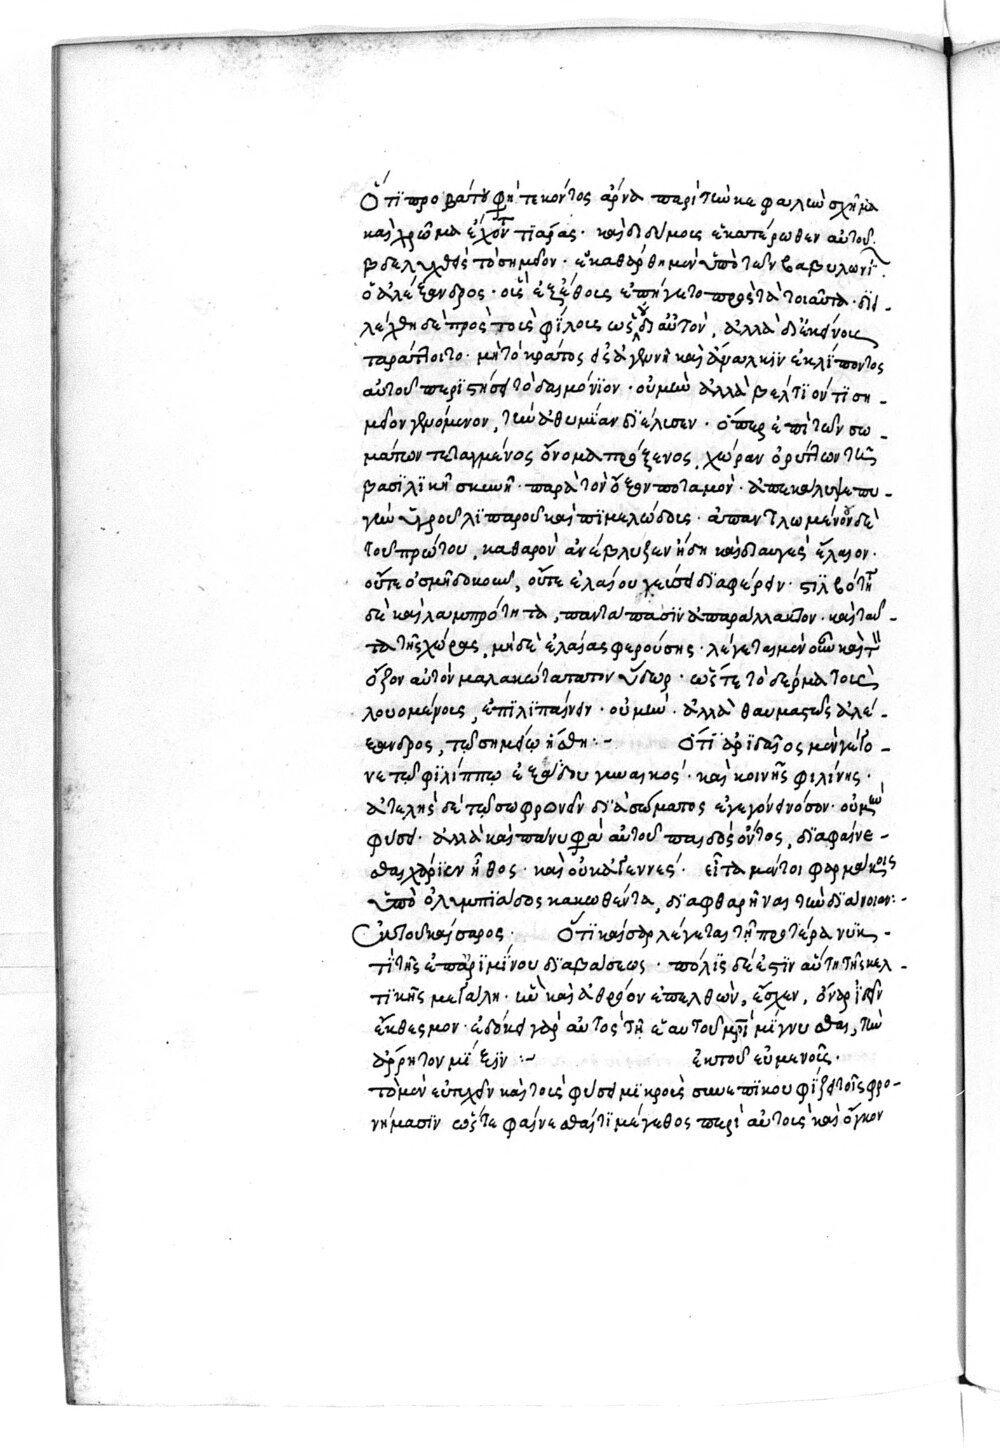 Ὅτι προβάτου φησὶ τεκόντος ἄρνα περὶ τὴν κεφαλὴν σχῆμα
καὶ χρῶμα ἔχοντι τιάρας· καὶ διδύμοις ἑκατέρωθεν αὐτοῦ·
βδελυχθεὶς τὸ σημεῖον· ἐκαθάρθη μὲν ὑπὸ τῶν βαβυλωνί
ὁ ἀλέξανδρος· οὓς ἐξ ἔθους ἐπήγετο πρὸς τὰ τοιαῦτα· δι-
λέχθη δὲ πρὸς τοὺς φίλους ὡς οὐ δι αὐτὸν, ἀλλὰ δι ἐκείνους
ταράττοιτο· μὴ τὸ κράτος εἰς ἀγεννῆ καὶ ἄναλκιν ἐκλίποντος
αὐτοῦ περιστήσει τὸ δαιμόνιον· οὐ μὴν ἀλλὰ βέλτιόν τι ση-
μεῖον γενόμενον, τὴν ἀθυμίαν διέλυσεν· ὁ γὰρ ἐπὶ τῶν σω-
μάτων τεταγμένος ὄνομα πρόξενος, χώραν ὀρύττων τῆ
βασιλικῆ σκηνῆ· παρὰ τὸν ὄξον ποταμὸν· ἀπεκάλυψε πη-
γὴν ὑγροῦ λιπαροῦ καὶ πιμελώδους· ἀπαντλωμένου δὲ
τοῦ πρώτου, καθαρὸν ἀνέβλυζεν ἤδη καὶ διαυγὲς ἔλαιον·
οὔτε ὀσμῆ δοκοῦν, οὔτε ἐλαίου γεύσει διαφέρειν· στιλβότη
δὲ καὶ λαμπρότητα, πανταπασιν ἀπαράλλακτον· καὶ ταῦ-
τα τῆς χώρας, μηδὲ ἐλαίας φερούσης· λέγεται μὲν οὖν καὶ τὸν
ὄξον αὐτὸν μαλακώτατατον ὕδωρ· ὥστε τὸ δέρμα τοῖς
λουομένοις, ἐπιλιπαίνειν· οὐ μὴν· ἀλλὰ θαυμαστῶς ἀλέ-
ξανδρος, τῶ σημείω ἥσθη:- Ὅτι ἀριδαῖος μὲν γέγο-
νε τῶ φιλίππω ἐξ ἀδόξου γυναικὸς· καὶ κοινῆς φιλίνης·
ἀτελὴς δὲ τῶ σωφρονεῖν διὰ σώματος ἐγεγόνει νόσον· οὐ μὴν
φύσει· ἀλλὰ καὶ πάνυ φασὶ αὐτοῦ παιδὸς ὄντος, διαφαίνε-
σθαι χαρίεν ἦθος· καὶ οὐκ ἀγεννές· εἶτα μέντοι φαρμάκοις
ὑπὸ ὀλυμπιάδος κακωθέντα, διαφθαρῆναι τὴν διάνοιαν:-
Ἐκ τοῦ καίσαρος· Ὅτι καίσαρ λέγεται τῆ προτέρα νυκ-
τὶ τῆς ἐπ ἀριμίνου διαβάσεως· πόλις δέ ἐστιν αὕτη τῆς κελ-
τικῆς μεγάλη· ἣν καὶ ἀθρόον ἐπελθὼν, ἔσχεν, ὄναρ ἰδεῖν
ἔκθεσμον· ἐδόκει γὰρ αὐτὸς τῆ ἑαυτοῦ μητρὶ μίγνυσθαι, τὴν
ἄρρητον μίξιν :- ἐκ τοῦ εὐμενοῦς·
τὸ μὲν εὐτυχεῖν καὶ τοὺς φύσει μικροὺς συνεπικουφίζει τοῖς φρο-
νήμασιν ὥστε φαίνεσθαί τι μέγεθος περὶ αὐτοὺς καὶ ὄγκον